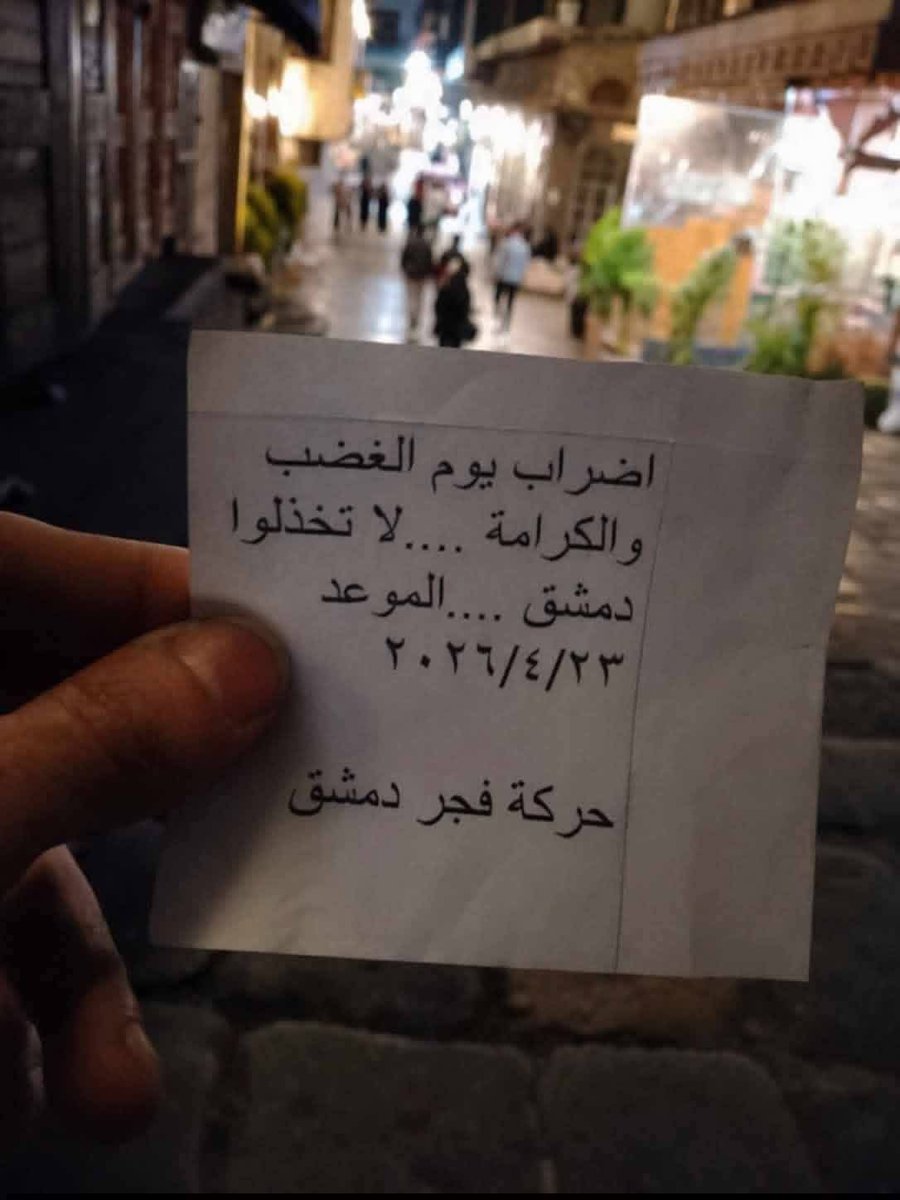 اضراب يوم الغضب
والكرامة ....لا تخذلوا
دمشق ....الموعد
٢٠٢٦/٤/٢٣
حركة فجر دمشق